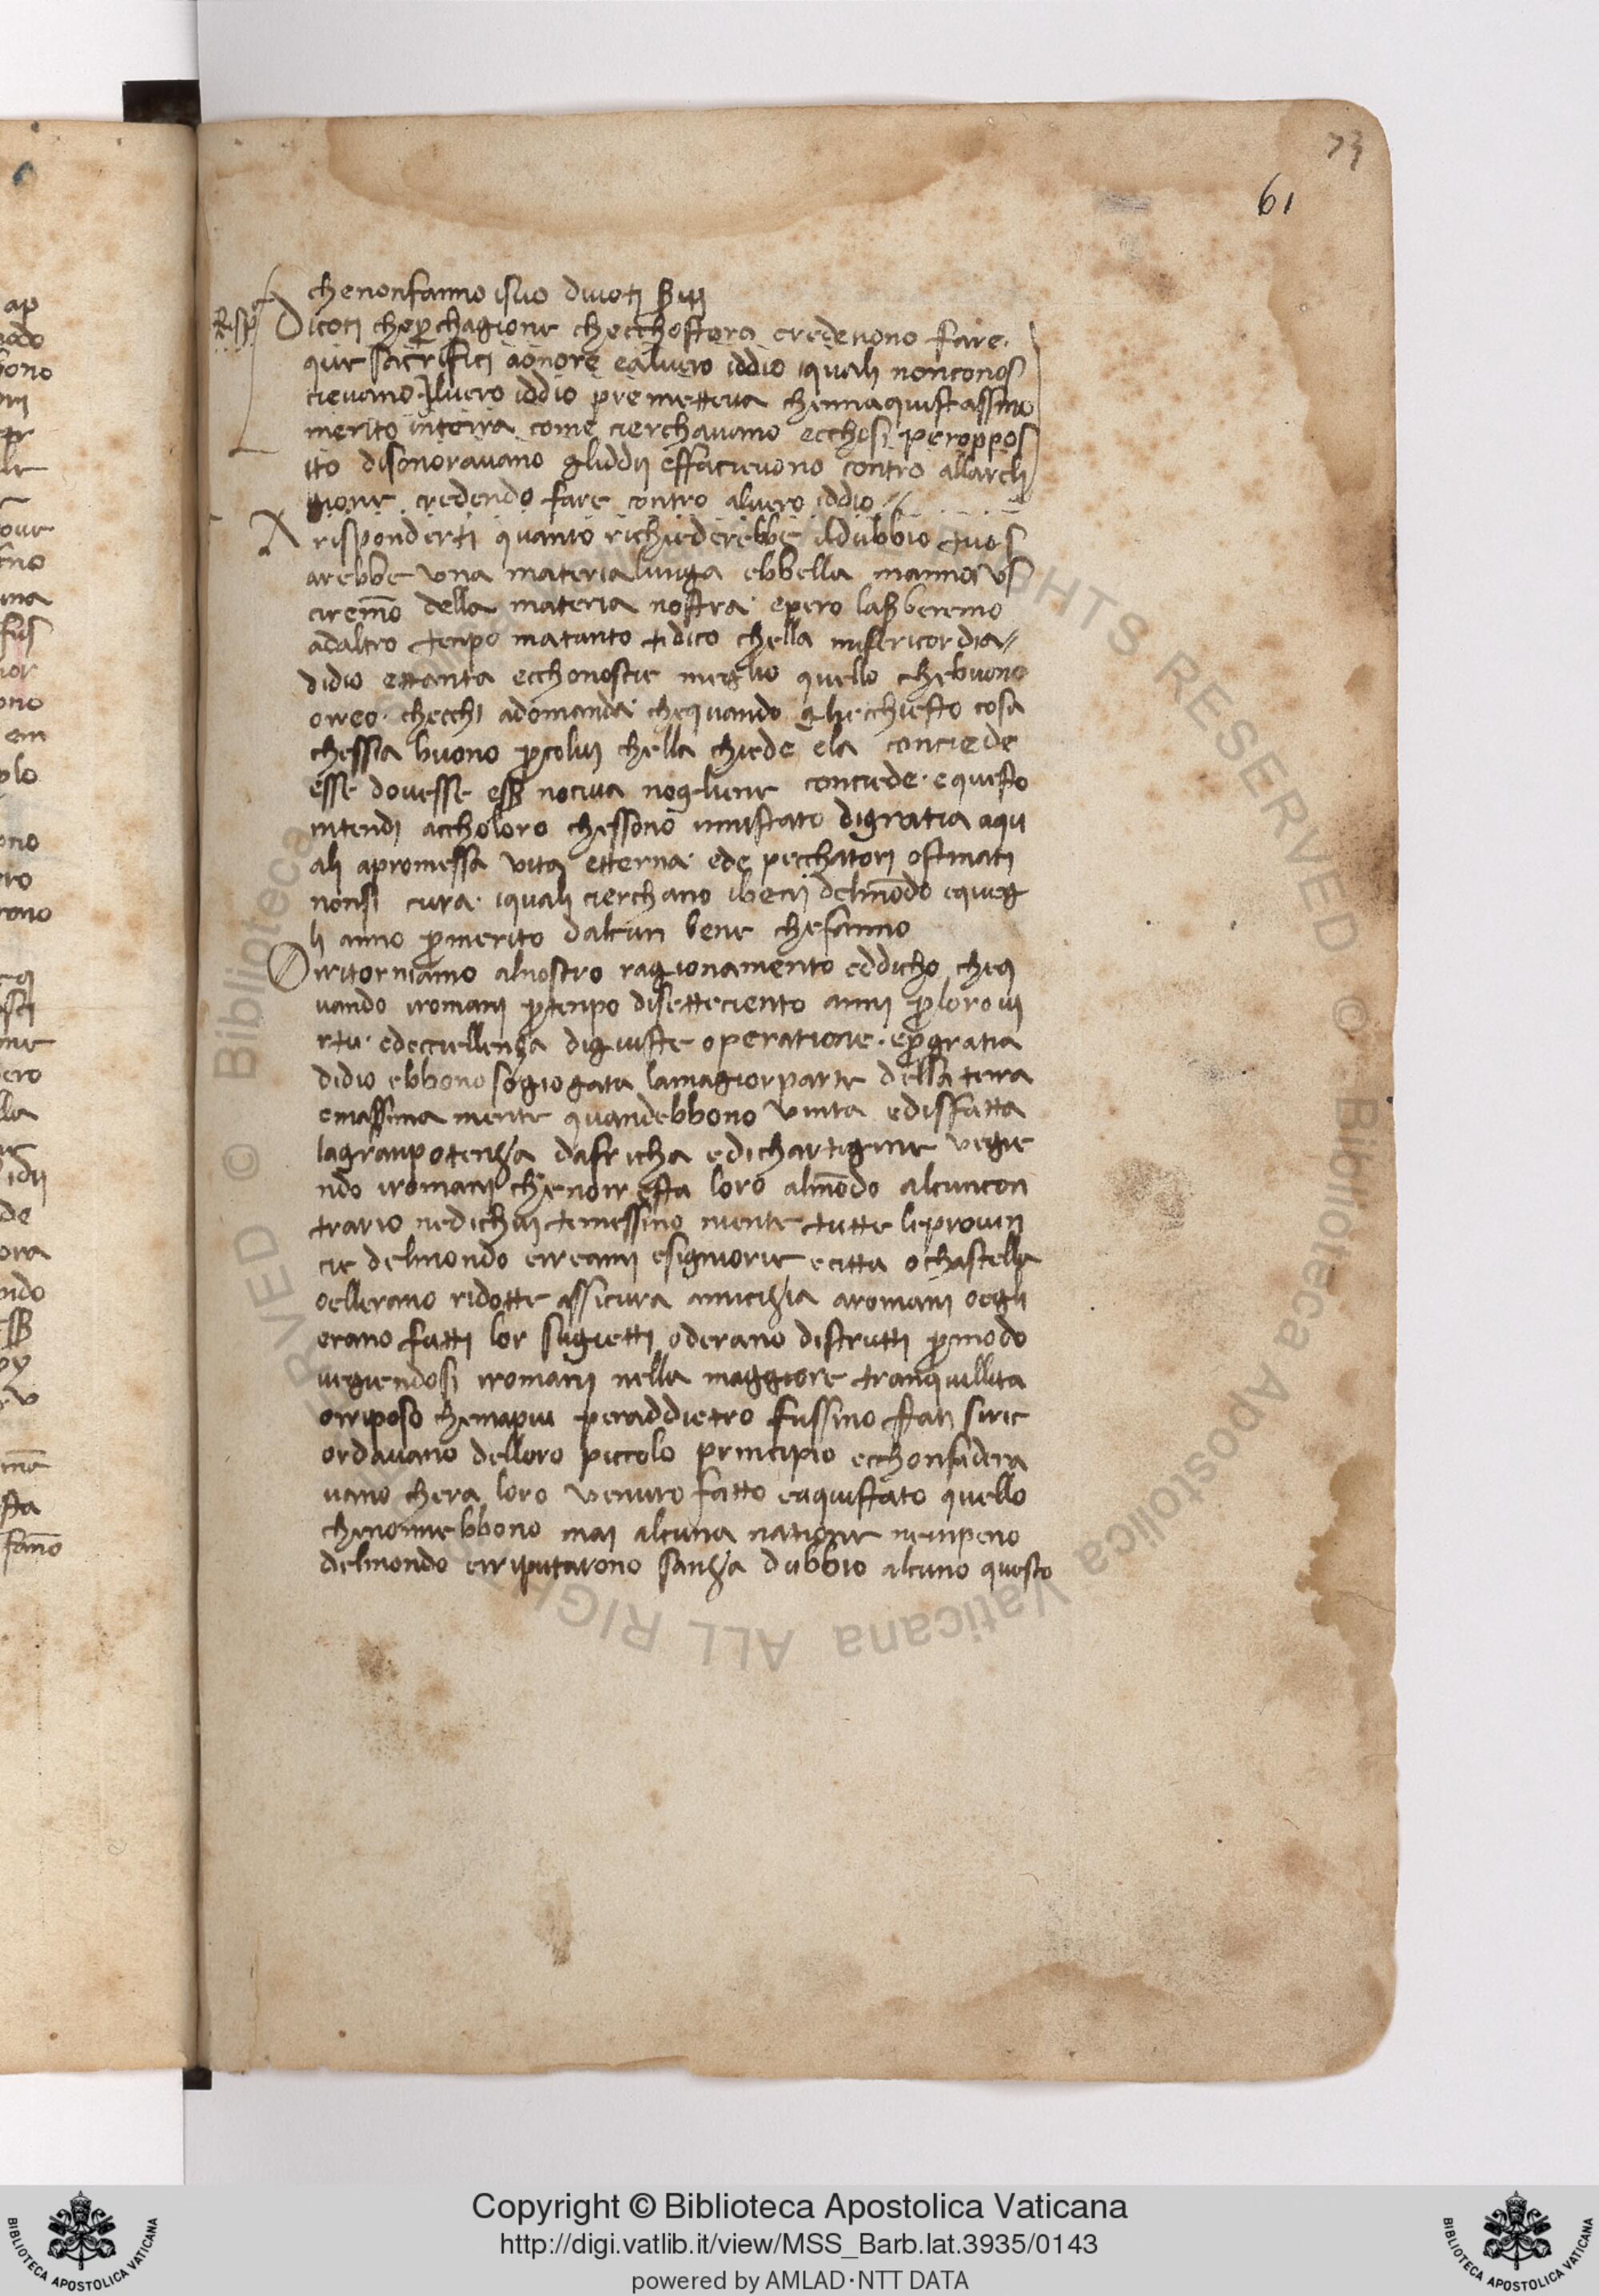 73
61
chenonfanno isuo divoti
Risp
Dicoti chep chagione checchostoro credevono fare
que sacrifici aonore ealvero iddio iquali nonconos
cievano. Ilvero iddio premetteva chennaquistassino
merito interra come cierchavano ecchosi peroppos
ito disonoravano gliddii effacievono contro allareli
gione credendo fare contro alvero iddio
A risponderti quanto richiederebbe ildubbio tuo s
arebbe una materia lunga ebbella manno us
ciremo della materia nostra. epero laserberemo
adaltro tenpo matanto tidico chella misericordia
didio ettanta ecchonoscie meglio quello chebuono
oreo. checchi adomanda. chequando glie chiesto cosa
chessia buono pcolui chella chiede ela conciede
esse dovesse nociva nogliene conciede. equesto
intendi accholoro chessono innistato digratia aqu
ali apromessa vita etterna. ede pecchatori ostinati
nonsi cura. iquali cierchano ibeni delmōdo equeg
li anno pmerito dalcun bene chefanno
Orritorniamo alnostro ragionamento eddicho cheq
uando iromani ptenpo disetteciento anni ploro vi
rtu. edeccellenza digiuste operatione. epgratia
didio ebbono sogiogata lamagiorparte della terra
emassima mente quandebbono vinta edisfatta
lagranpotenza dafricha edichartagine vegie
ndo iromani chenonresta loro almōdo alcuncon
trario nedichui temessino mente tutte leprovin
cie delmondo erreami esignorie ecitta ochastella
oellerano ridotte assicura amicizia aromani oegli
erano fatti lor sugietti oderano distrutti pmodo
vegiendosi iromani nella maggiore tranquillita
orriposo chemapiu peraddietro fussino stati siric
ordavano delloro piccolo principio ecchonsidera
vano chera loro venuto fatto eaquistato quello
chenonnebbono mai alcuna natione nenpero
delmondo erriputarono sanza dubbio alcuno questo
Copyright © Biblioteca Apostolica Vaticana
http://digi.vatlib.it/view/MSS_Barb.lat.3935/0143
powered by AMLAD·NTT DATA